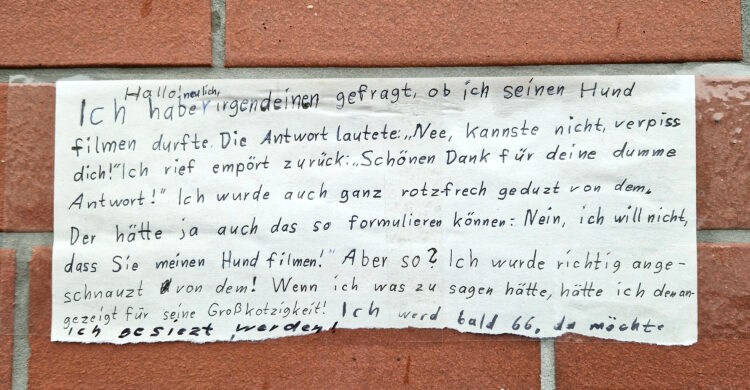 Hallo! neulich,
Ich habe irgendeinen gefragt, ob ich seinen Hund
filmen durfte. Die Antwort lautete: „Nee, kannste nicht, verpiss
dich!" Ich rief empört zurück: „Schönen Dank für deine dumme
Antwort!" Ich wurde auch ganz rotzfrech geduzt von dem.
Der hätte ja auch das so formulieren können: Nein, ich will nicht,
dass Sie meinen Hund filmen!" Aber so? Ich wurde richtig ange-
schnauzt von dem! Wenn ich was zu sagen hätte, hätte ich den an-
gezeigt für seine Großkotzigkeit! Ich werd bald 66, da möchte
ich gesiezt werden!